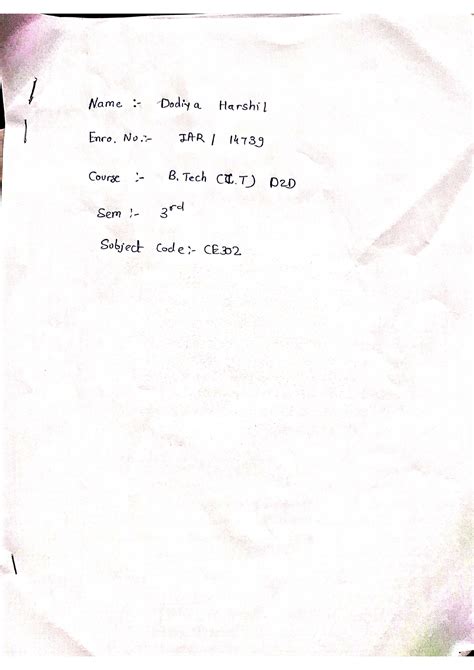 Name :- Dodiya Harshil
Enro. No.:- IAR / 14739
Course :- B.Tech (I.T) D2D
Sem :- 3rd
Subject Code:- CE302